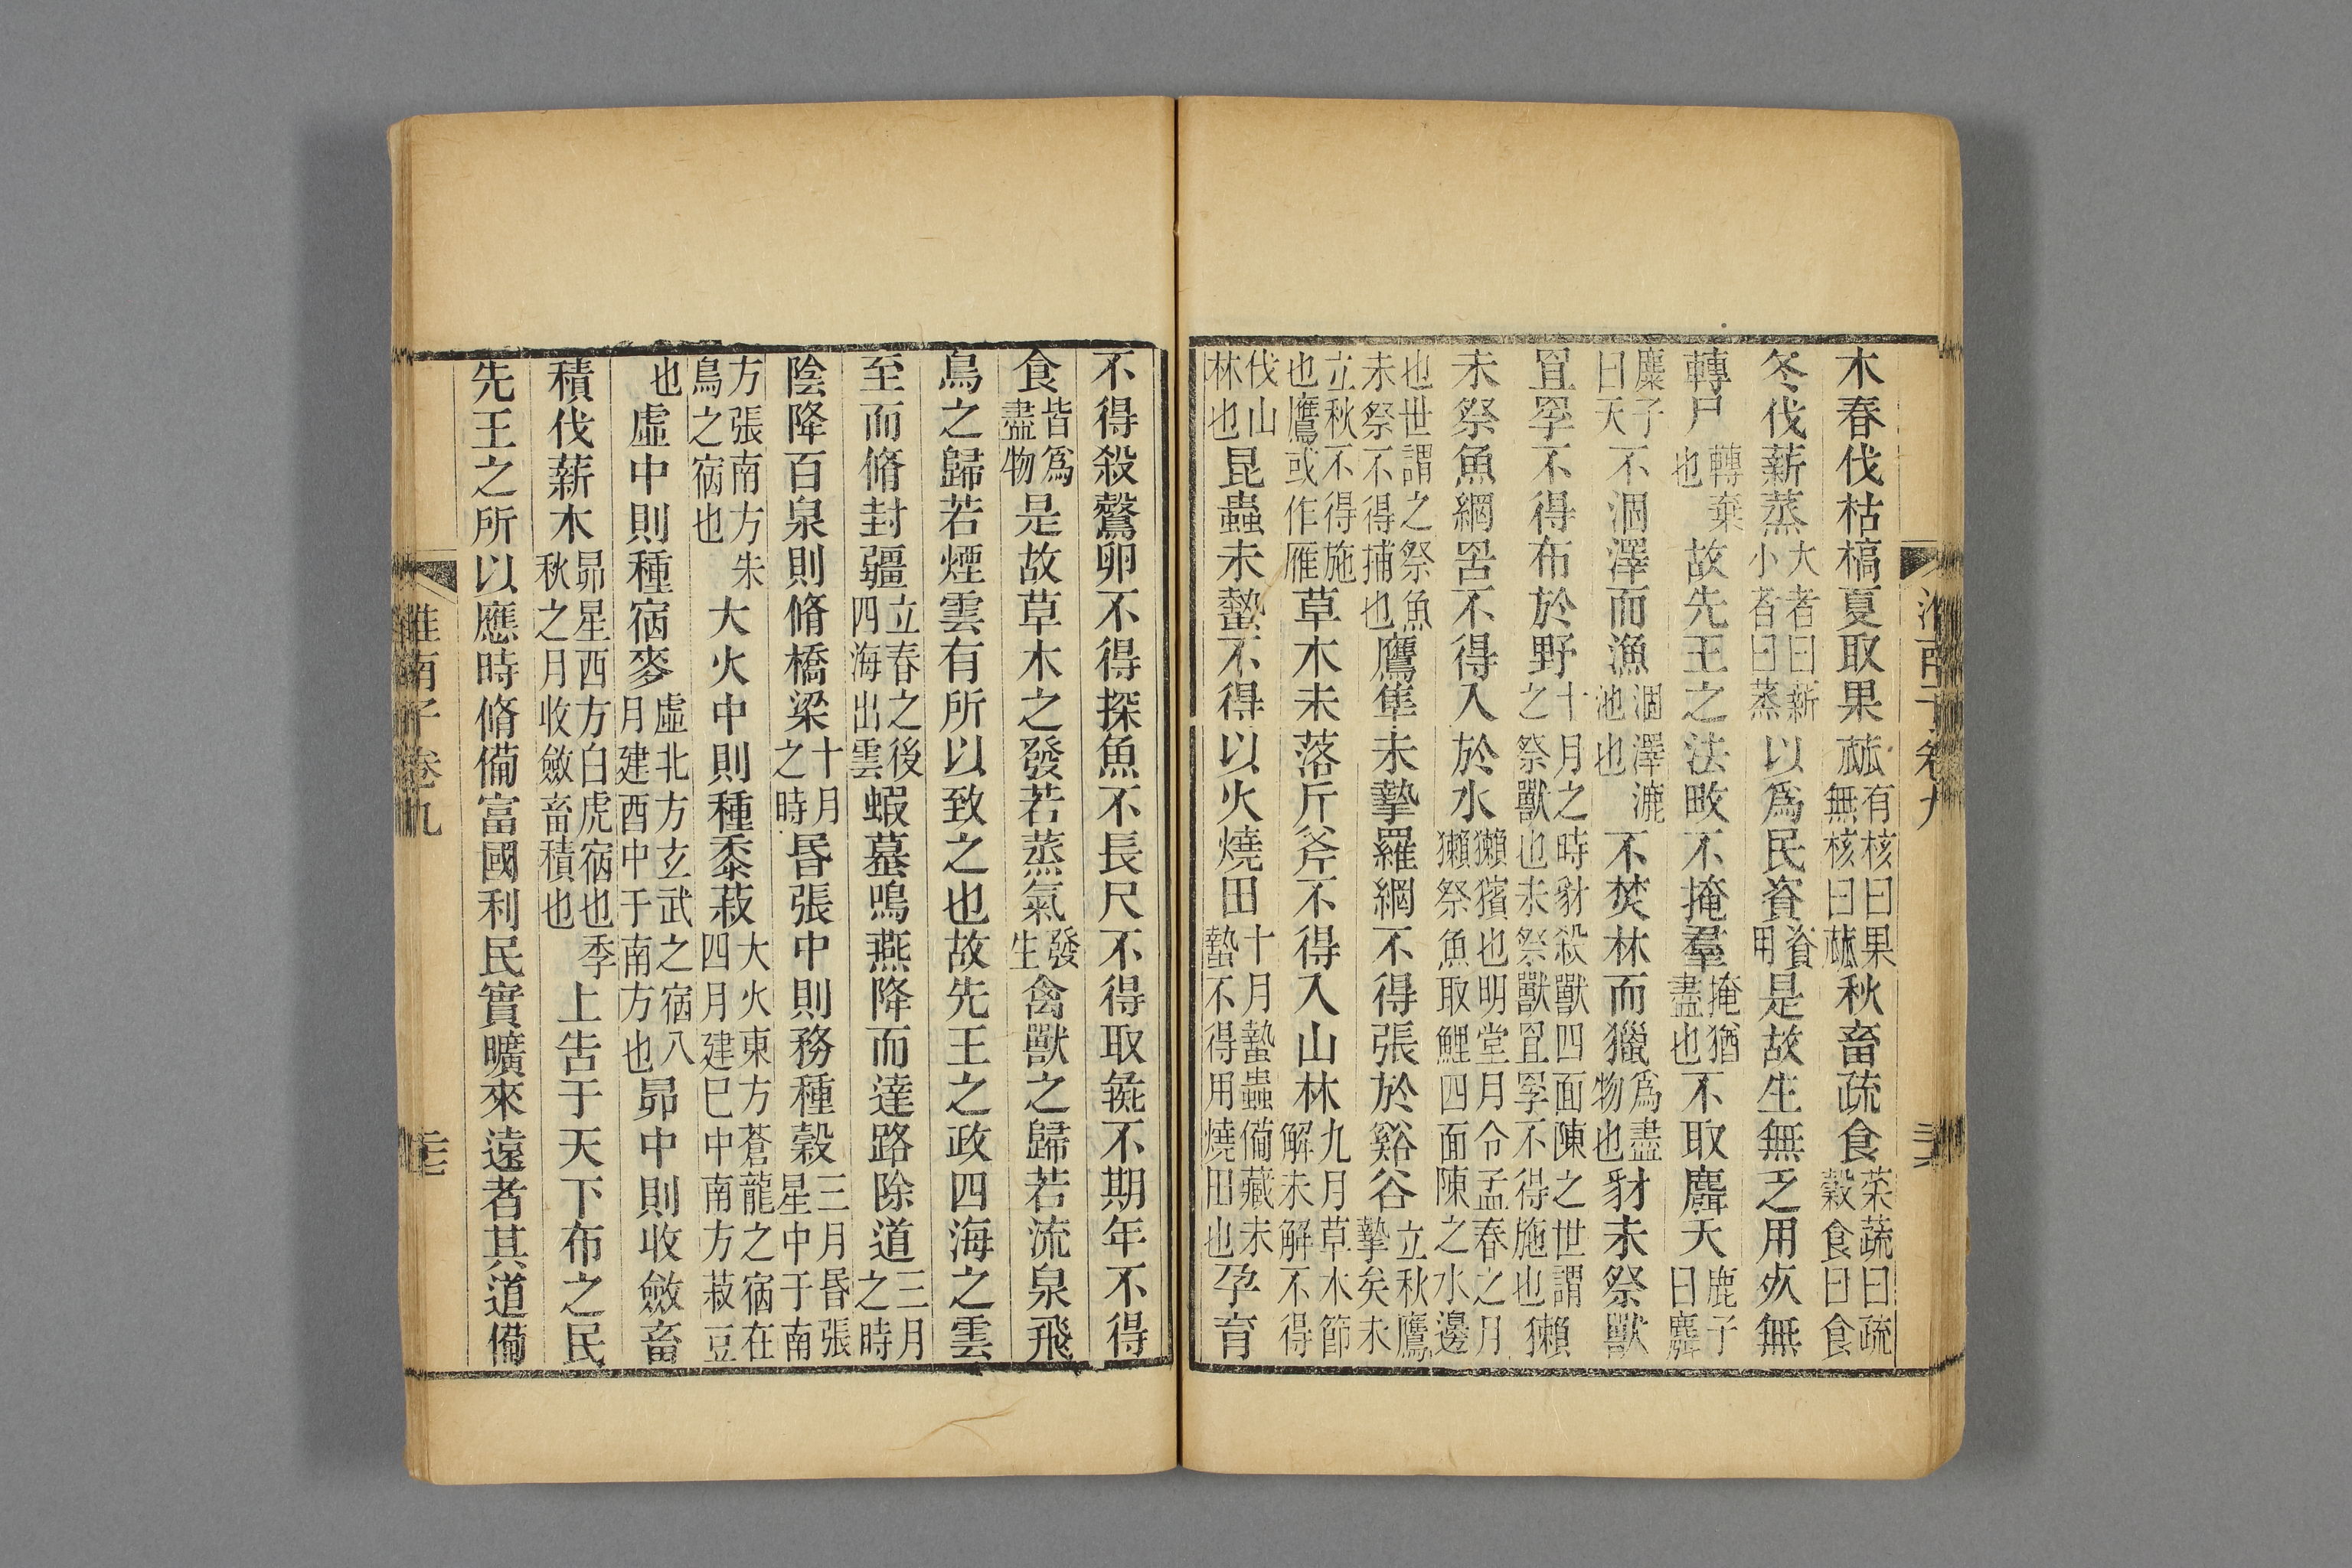 木春伐枯槁夏取果蓏有核曰果無核曰蓏秋畜疏食菜蔬曰疏穀食曰食
冬伐薪蒸大者曰薪小者曰蒸以爲民資資用是故生無乏用死無
轉尸轉棄也故先王之法畋不掩羣掩猶盡也不取麛夭鹿子曰麛
麋子曰夭不涸澤而漁涸澤漉池也不焚林而獵爲盡物也豺未祭獸
罝罦不得布於野十月之時豺殺獸四面陳之世謂之祭獸也未祭獸罝罦不得施也獺
未祭魚網罟不得入於水獺獱也明堂月令孟春之月獺祭魚取鯉四面陳之水邊
也世謂之祭魚未祭不得捕也鷹隼未摯羅網不得張於谿谷立秋鷹摯矣未
立秋不得施也鷹或作雁草木未落斤斧不得入山林九月草木節解未解不得
伐山林也昆蟲未蟄不得以火燒田十月蟄蟲備藏未蟄不得用燒田也孕育
淮南子卷九
不得殺鷇卵不得探魚不長尺不得取彘不期年不得
食皆爲盡物是故草木之發若蒸氣發生禽獸之歸若流泉飛
鳥之歸若煙雲有所以致之也故先王之政四海之雲
至而脩封疆立春之後四海出雲蝦蟇鳴燕降而達路除道三月之時
陰降百泉則脩橋梁十月之時昏張中則務種穀三月昏張星中于南
方張南方朱鳥之宿也大火中則種黍菽大火東方蒼龍之宿在四月建巳中南方菽豆
也虛中則種宿麥虛北方玄武之宿八月建酉中于南方也昴中則收斂畜
積伐薪木昴星西方白虎宿也季秋之月收斂畜積也上告于天下布之民
先王之所以應時脩備富國利民實曠來遠者其道備
淮南子卷九